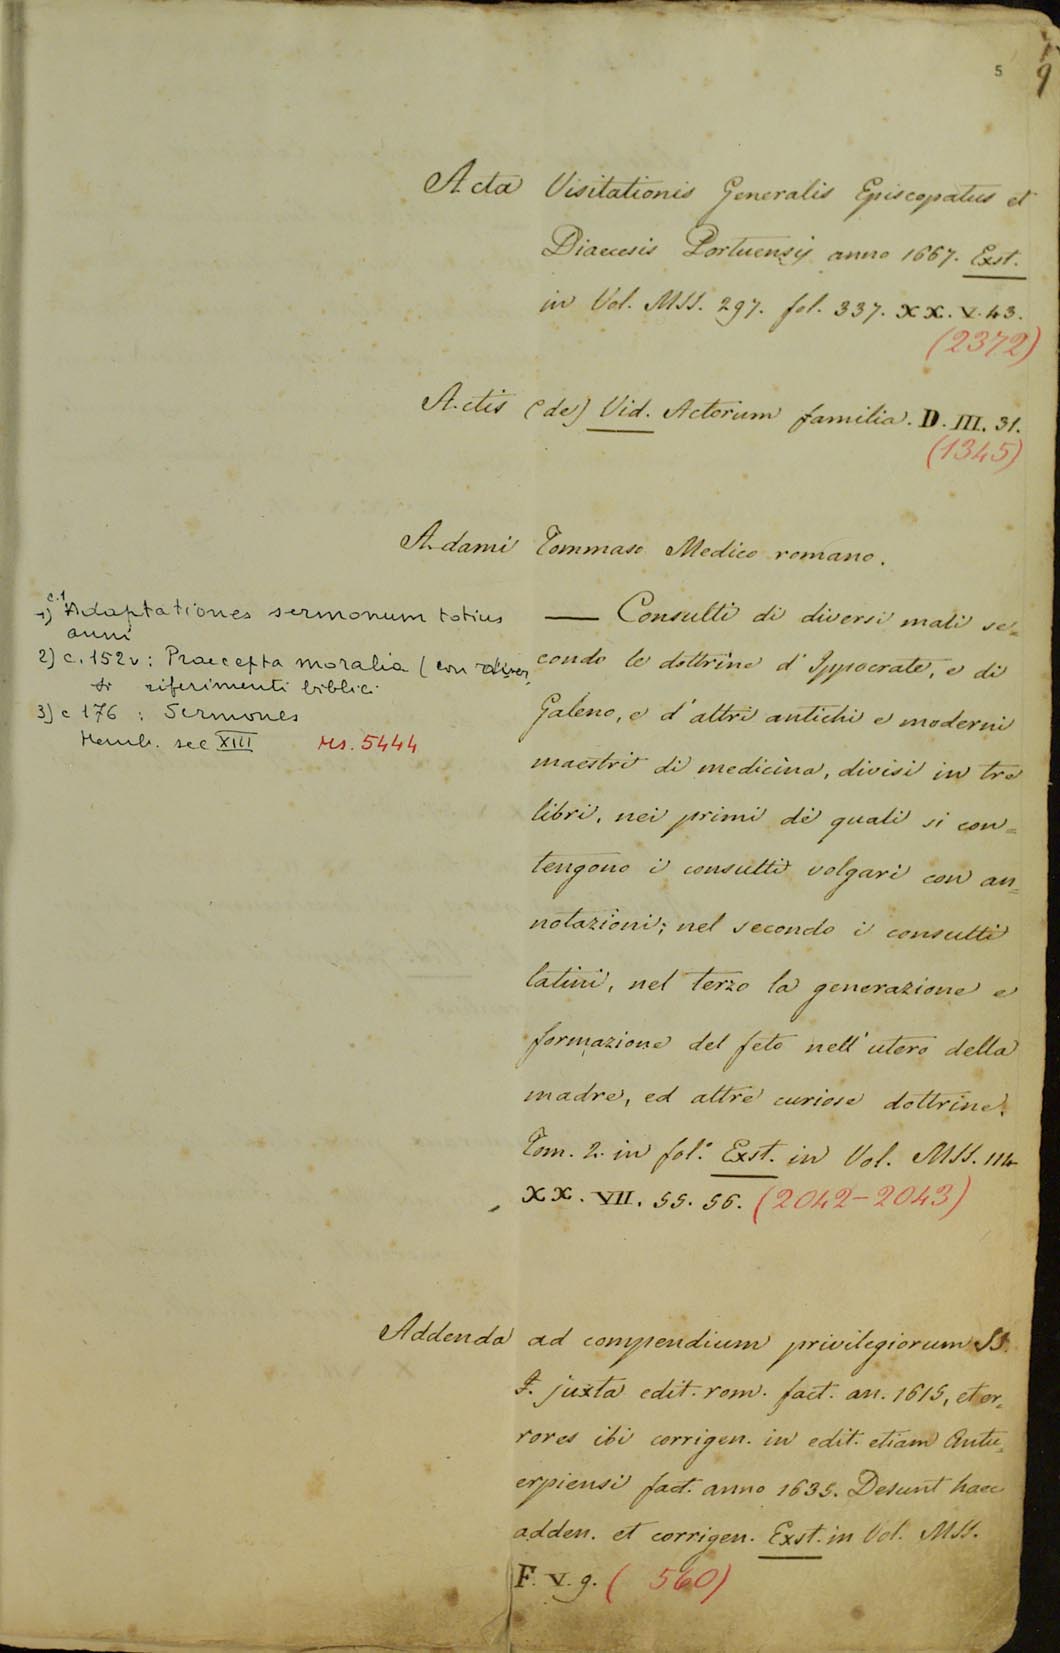 5
9
Acta Visitationis Generalis Episcopatus et
Diaecesis Portuensis anno 1667. Exst.
in Vol. MSS. 297. fol. 337. XX. V. 43.
(2372)
Actis (de) Vid. Actorum familia. D. III. 31.
(1345)
Adami Tommaso Medico romano.
— Consulti di diversi mali se=
condo le dottrine d'Ippocrate, e di
Galeno, e d'altri antichi e moderni
maestri di medicina, divisi in tre
libri, nei primi de quali si con=
tengono i consulti volgari con an=
notazioni; nel secondo i consulti
latini, nel terzo la generazione e
formazione del feto nell'utero della
madre, ed altre curiose dottrine.
Tom. 2. in fol.º Exst. in Vol. MSS. 114
XX. VII. 55. 56. (2042-2043)
c.1
1) Adaptationes sermonum totius
anni
2) c. 152v: Praecepta moralia (con diver
si riferimenti biblici
3) c 176 : Sermones
Memb. sec XIII Ms. 5444
Addenda ad compendium privilegiorum SS.
J. juxta edit. rom. fact. an. 1615, et er=
rores ibi corrigen. in edit. etiam Antu=
erpiensi fact. anno 1635. Desunt haec
adden. et corrigen. Exst. in Vol. MSS.
F. V. 9. ( 560)